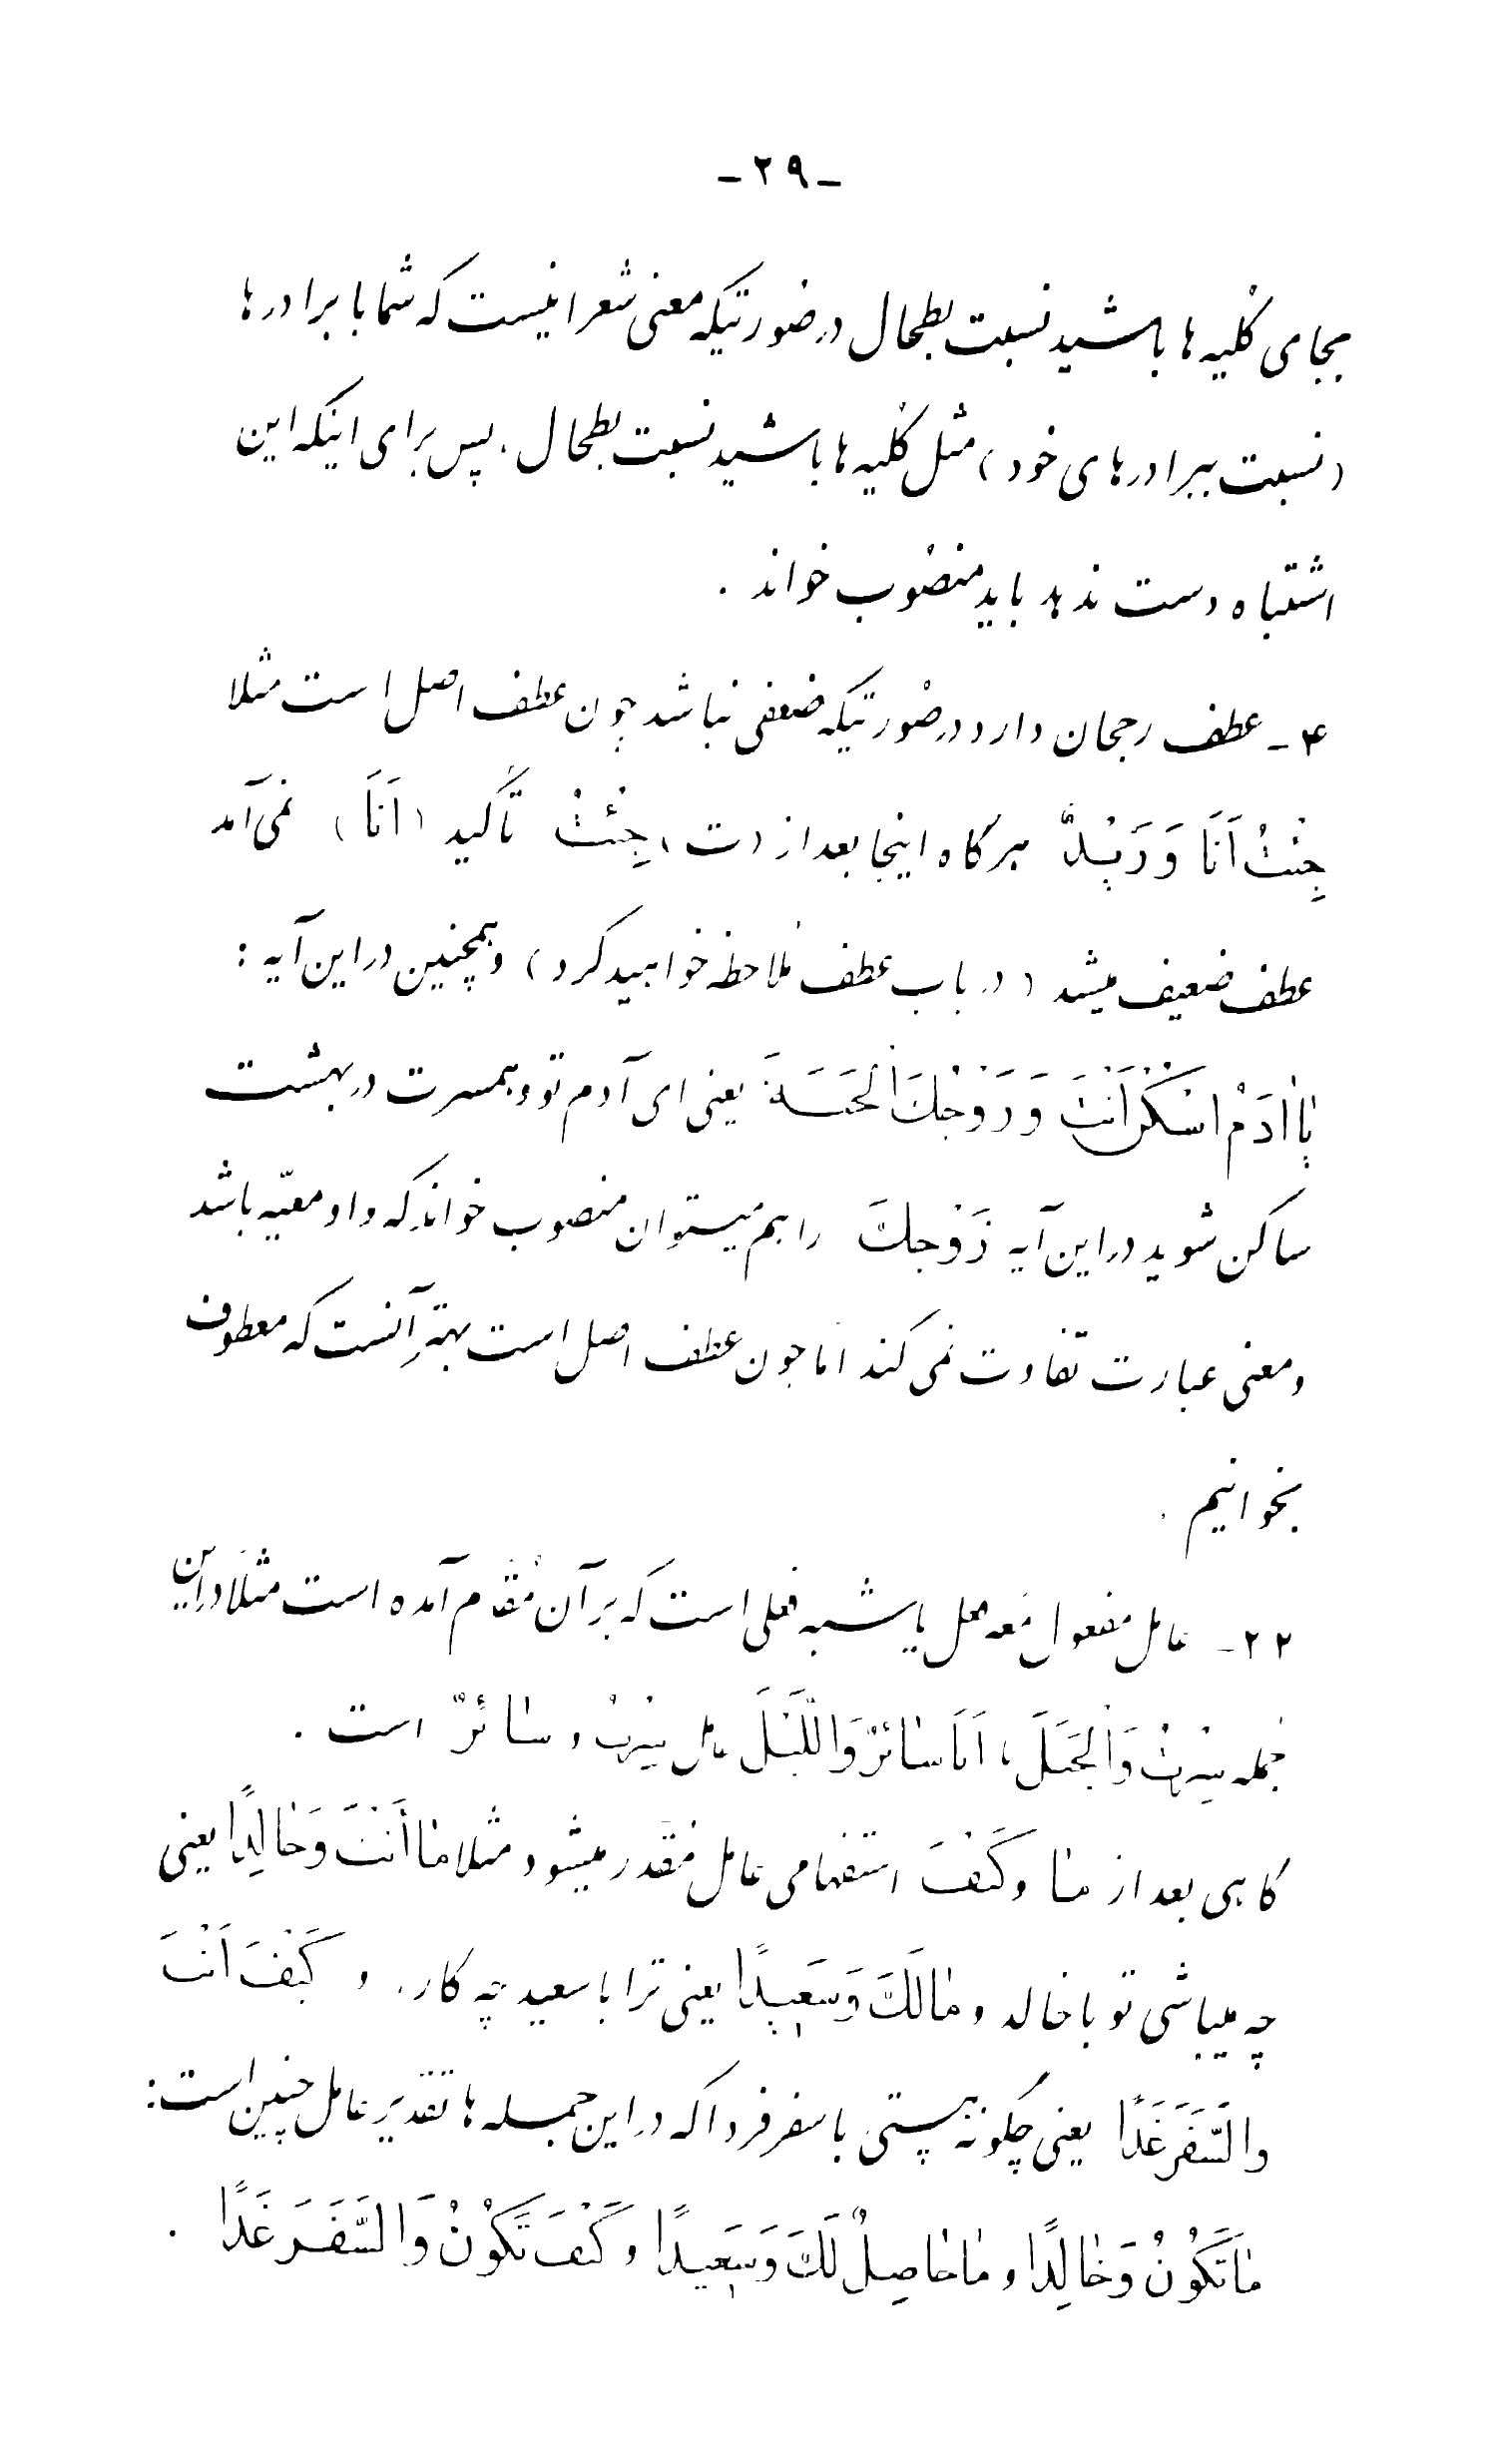 -۲۹-
بجای کُلیه ها باشید نسبت بطحال درصورتیکه معنی شعر اینست که شما با برادرها
(نسبت ببرادرهای خود) مثل کُلیه ها باشید نسبت بطحال، پس برای اینکه این
اشتباه دست ندهد باید منصوب خواند .
۴- عطف رجحان دارد درصورتیکه ضعفی نباشد چون عطف اصل است مثلا
جِئْتُ اَنَا وَ زَیْدٌ هرگاه اینجا بعد از (ت) جِئْتُ تأکید (اَنَا) نمی آمد
عطف ضعیف میشد (در باب عطف ملاحظه خواهید کرد) و همچنین در این آیه :
یٰا اٰدَمُ اسْکُنْ اَنْتَ وَ زَوْجُكَ الْجَنَّةَ یعنی ای آدم تو و همسرت در بهشت
ساکن شوید در این آیه زَوْجكَ را هم میتوان منصوب خواند که واو معیّه باشد
و معنی عبارت تفاوت نمی کند امّا چون عطف اصل است بهتر آنست که معطوف
بخوانیم .
۲۲- عامل مفعول مَعه فعل یا شبه فعلی است که بر آن مُقدّم آمده است مثلاً در این
جمله سِرْتُ وَالْجَبَلَ ، اَنَا سٰائرٌ وَ اللَّیْلَ عامل سِرْتُ و سٰائرٌ است .
گاهی بعد از مٰا و کَیْفَ استفهامی عامل مُقدّر میشود مثلا مٰا أَنْتَ وَ خٰالِدًا یعنی
چه میباشی تو با خالد و مٰالَكَ وَ سَعیدًا یعنی ترا با سعید چه کار، و کَیْفَ اَنْتَ
وَالسَّفَرَ غَدًا یعنی چگونه هستی با سفر فردا که در این جمله ها تقدیر عامل چنین است :
مٰا تَکُونُ وَ خٰالِدًا و مٰا حٰاصِلٌ لَكَ وَ سَعیدًا و کَیْفَ تَکُوْنُ وَ السَّفَرَ غَدًا .